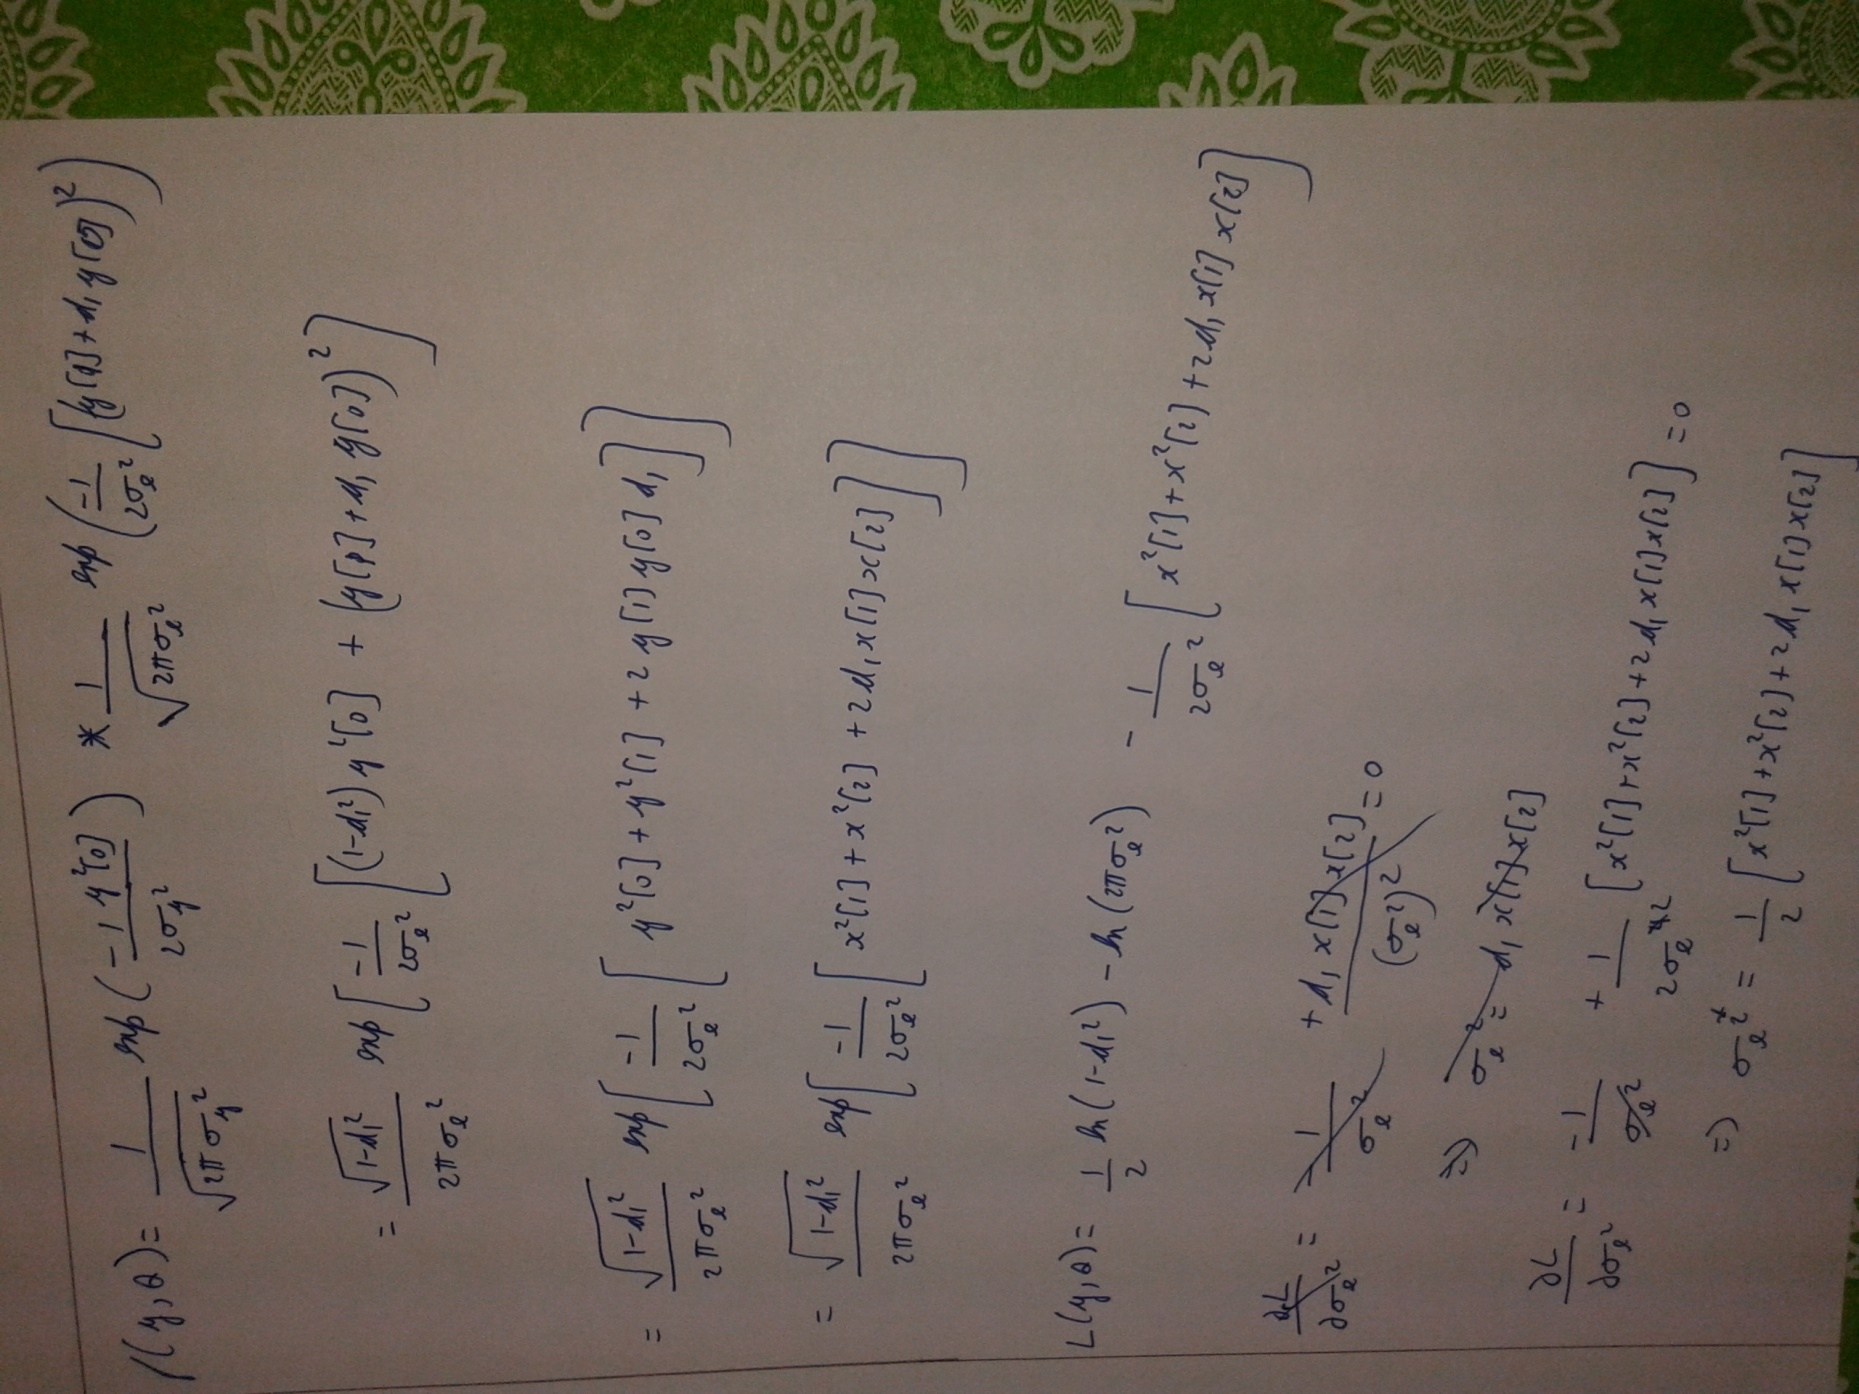 l(y,θ) = 1/√(2πσ_y²) exp(-1 y²[0] / 2σ_y²) * 1/√(2πσ_e²) exp(-1/2σ_e² [(y[1]+d₁y[0])²)
= √(1-d₁²)/2πσ_e² exp[-1/2σ_e² [(1-d₁²)y²[0] + (y[1]+d₁y[0])²]
= √(1-d₁²)/2πσ_e² exp[-1/2σ_e² [y²[0]+y²[1]+2y[1]y[0]d₁]]
= √(1-d₁²)/2πσ_e² exp[-1/2σ_e² [x²[1]+x²[2]+2d₁x[1]x[2]]]
L(y,θ) = 1/2 ln(1-d₁²) - ln(2πσ_e²) - 1/2σ_e² [x²[1]+x²[2]+2d₁x[1]x[2]]
∂L/∂σ_e² = -1/σ_e² + d₁x[1]x[2]/(σ_e²)² = 0
=> σ_e² = d₁x[1]x[2]
∂L/∂σ_e² = -1/σ_e² + 1/2σ_e⁴² [x²[1]+x²[2]+2d₁x[1]x[2]] = 0
=> σ_e²* = 1/2 [x²[1]+x²[2]+2d₁x[1]x[2]]